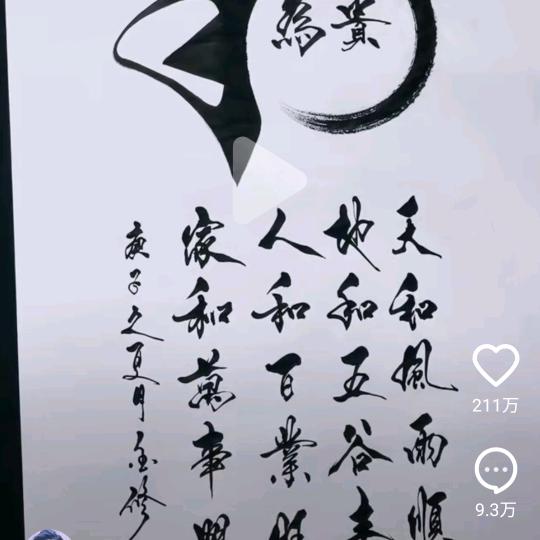 為貴
天和風雨順
地和五谷
人和百業旺
家和萬事興
庚子之夏月金修
211万
9.3万